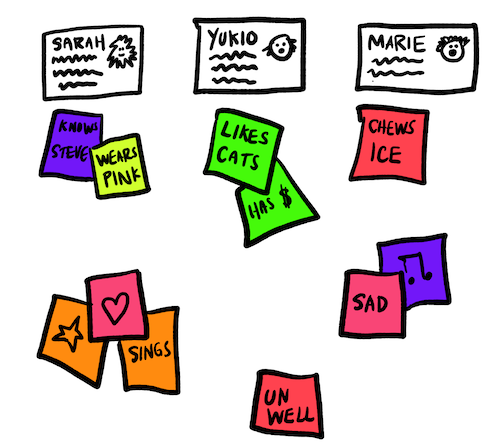 SARAH
YUKIO
MARIE
KNOWS
STEVE
WEARS
PINK
LIKES
CATS
HAS $
CHEWS
ICE
SINGS
SAD
UN
WELL